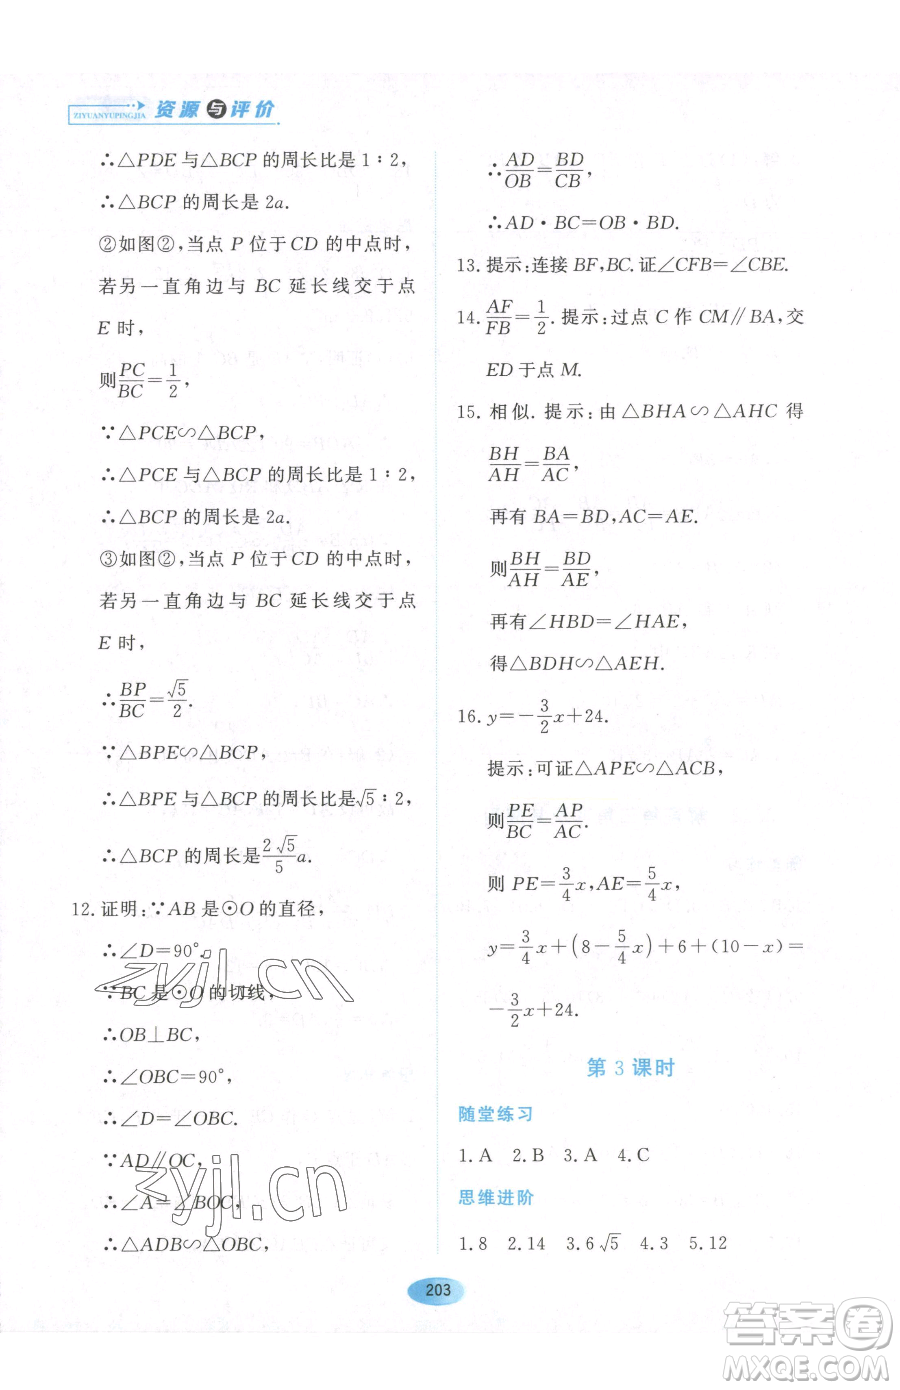 资源与评价
ZIYUANYUPINGJIA
∴△PDE 与△BCP 的周长比是 1∶2,
∴△BCP 的周长是 2a.
②如图②,当点 P 位于 CD 的中点时,
若另一直角边与 BC 延长线交于点
E 时,
则PC/BC=1/2,
∵△PCE∽△BCP,
∴△PCE 与△BCP 的周长比是 1∶2,
∴△BCP 的周长是 2a.
③如图②,当点 P 位于 CD 的中点时,
若另一直角边与 BC 延长线交于点
E 时,
∴BP/BC=√5/2.
∵△BPE∽△BCP,
∴△BPE 与△BCP 的周长比是√5∶2,
∴△BCP 的周长是2√5/5 a.
12. 证明:∵AB 是⊙O 的直径,
∴∠D=90°.
∵BC 是⊙O 的切线,
∴OB⊥BC,
∴∠OBC=90°,
∴∠D=∠OBC.
∵AD∥OC,
∴∠A=∠BOC,
∴△ADB∽△OBC,
∴AD/OB=BD/CB,
∴AD·BC=OB·BD.
13. 提示:连接 BF,BC. 证∠CFB=∠CBE.
14. AF/FB=1/2. 提示:过点 C 作 CM∥BA,交
ED 于点 M.
15. 相似. 提示:由△BHA∽△AHC 得
BH/AH=BA/AC,
再有 BA=BD,AC=AE.
则BH/AH=BD/AE,
再有∠HBD=∠HAE,
得△BDH∽△AEH.
16. y=-3/2x+24.
提示:可证△APE∽△ACB,
则PE/BC=AP/AC.
则 PE=3/4x,AE=5/4x,
y=3/4x+(8-5/4x)+6+(10-x)=
-3/2x+24.
第 3 课时
随堂练习
1. A 2. B 3. A 4. C
思维进阶
1. 8 2. 14 3. 6√5 4. 3 5. 12
203
zyjl.cn
zyjl.cn
答案卷
MXQE.COM